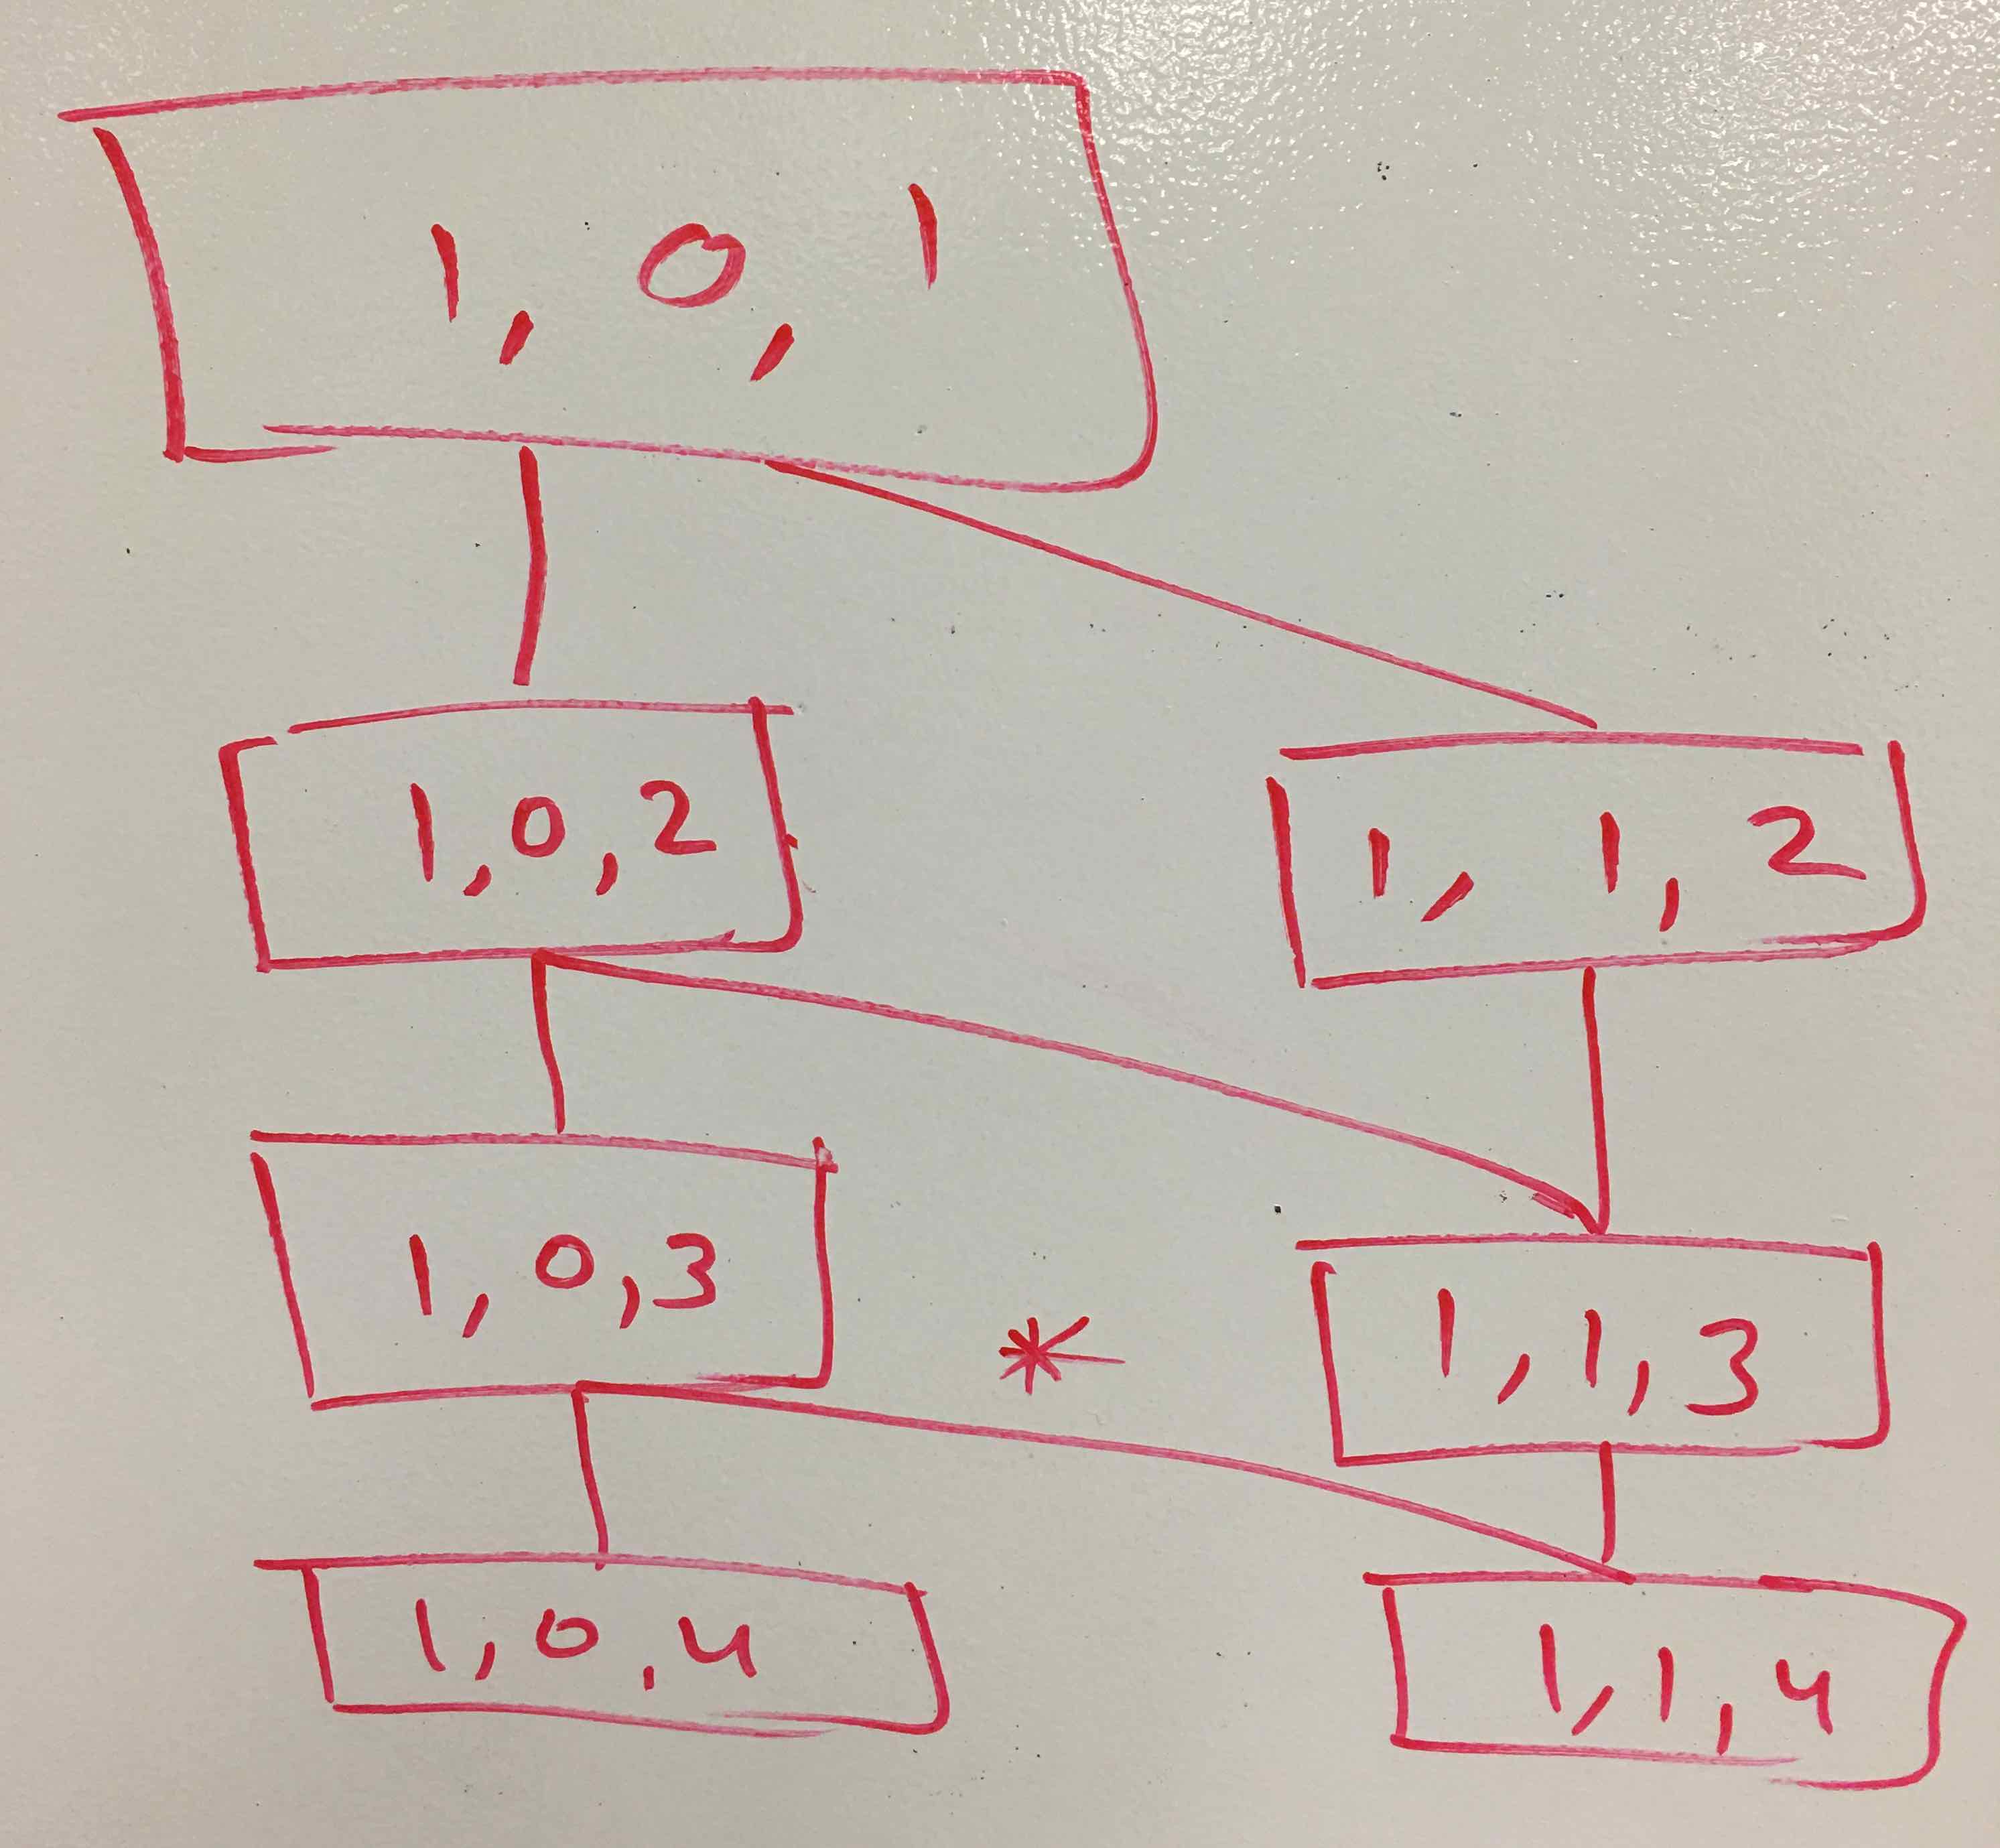 1, 0, 1
1,0,2
1, 1, 2
1,0,3
*
1,1,3
1,0,4
1,1,4